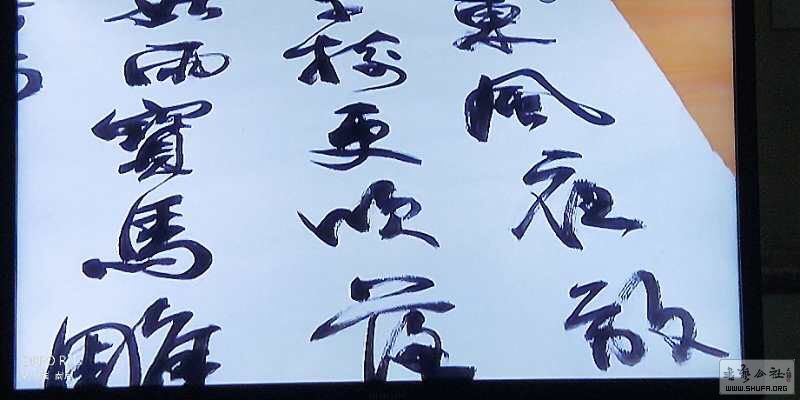 東風夜放
樹更吹落
如雨寶馬雕
书艺公社
WWW.SHUFA.ORG